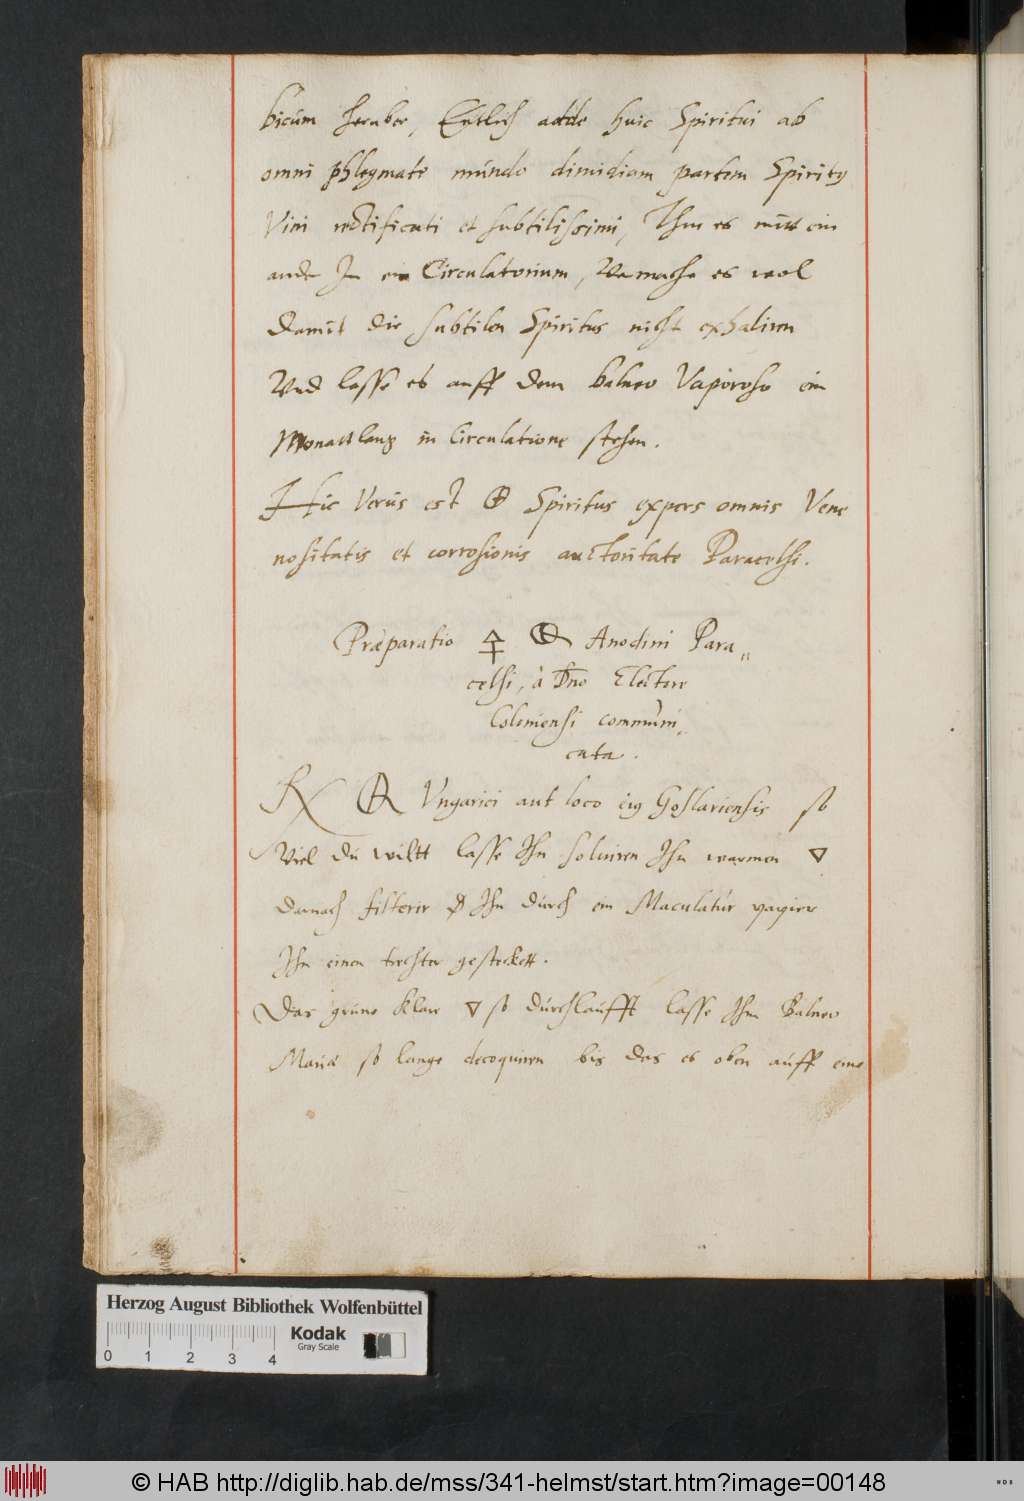 bicum heruber, Entlich adde huic Spiritui ab
omni phlegmate mundo dimidiam partem Spiritus
Vini rectificati et subtilissimi, Thue es mitt ein
ander In ein Circulatorium, Vermache es wol
damit die subtilen Spiritus nicht exhaliren
Vnd lasse es auff dem balneo Vaporoso ein
Monatt lang in Circulatione stehen.
Hic Verus est Spiritus expers omnis Vene
nositatis et corrosionis auctoritate Paracelsi.
Præparatio 🜍 Anodini Para„
celsi, à Dno Electore
Coloniensi communi„
cata.
Rx Vngarici aut loco eius Goslariensis so
Viel du wiltt lasse Ihn solviren Ihn warmen 🜄
darnach filterir Ihn durch ein Maculatur papier
Ihn einen trechter gesteckett.
Das grune klare 🜄 so durchlaufft lasse Ihm Balneo
Mariæ so lange decoquiren bis das es oben auff eine
Herzog August Bibliothek Wolfenbüttel
Kodak
Gray Scale
0 1 2 3 4
© HAB http://diglib.hab.de/mss/341-helmst/start.htm?image=00148